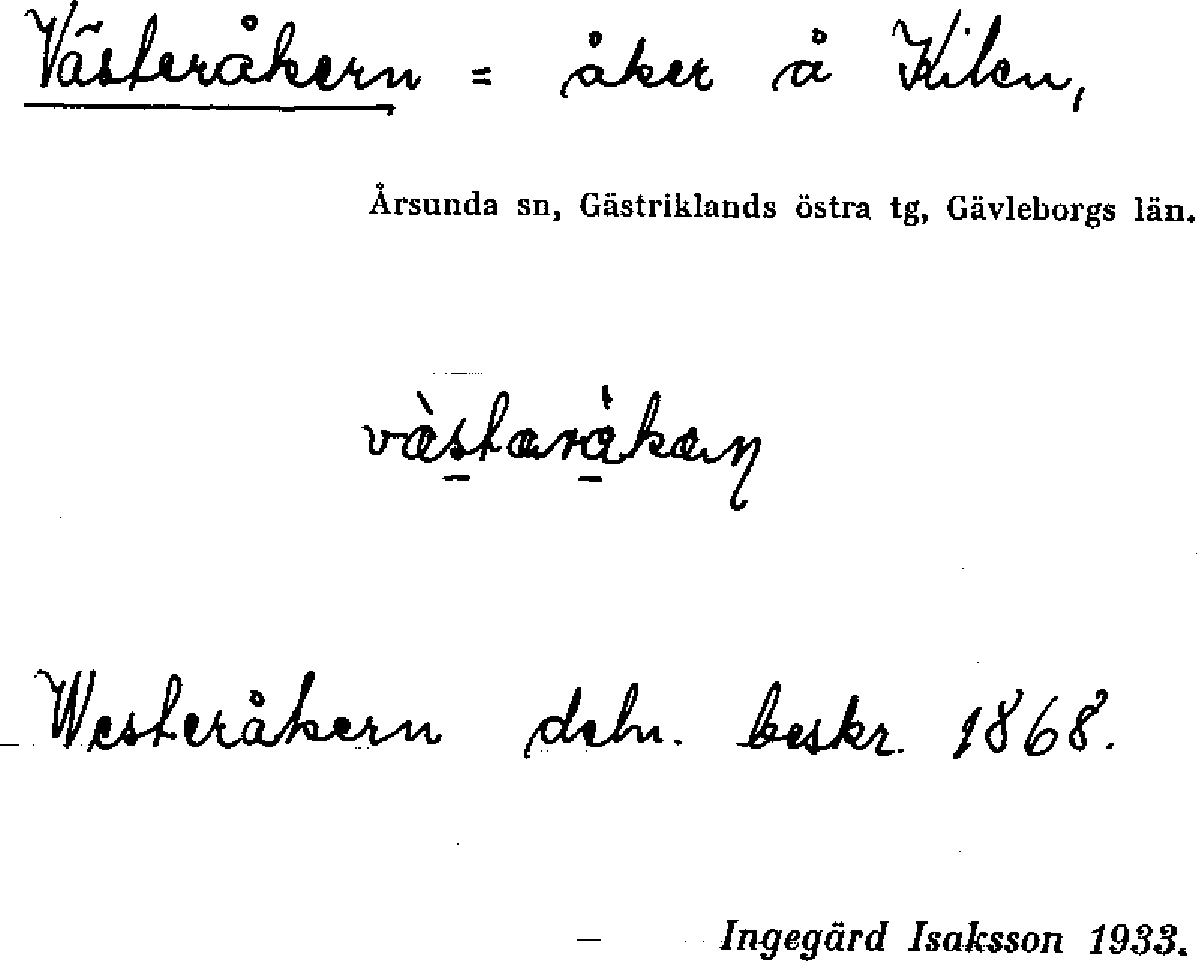 Västeråkern = åker å Kilen,
Årsunda sn, Gästriklands östra tg, Gävleborgs län.
Westeråkern deln. beskr. 1868.
Ingegärd Isaksson 1933.